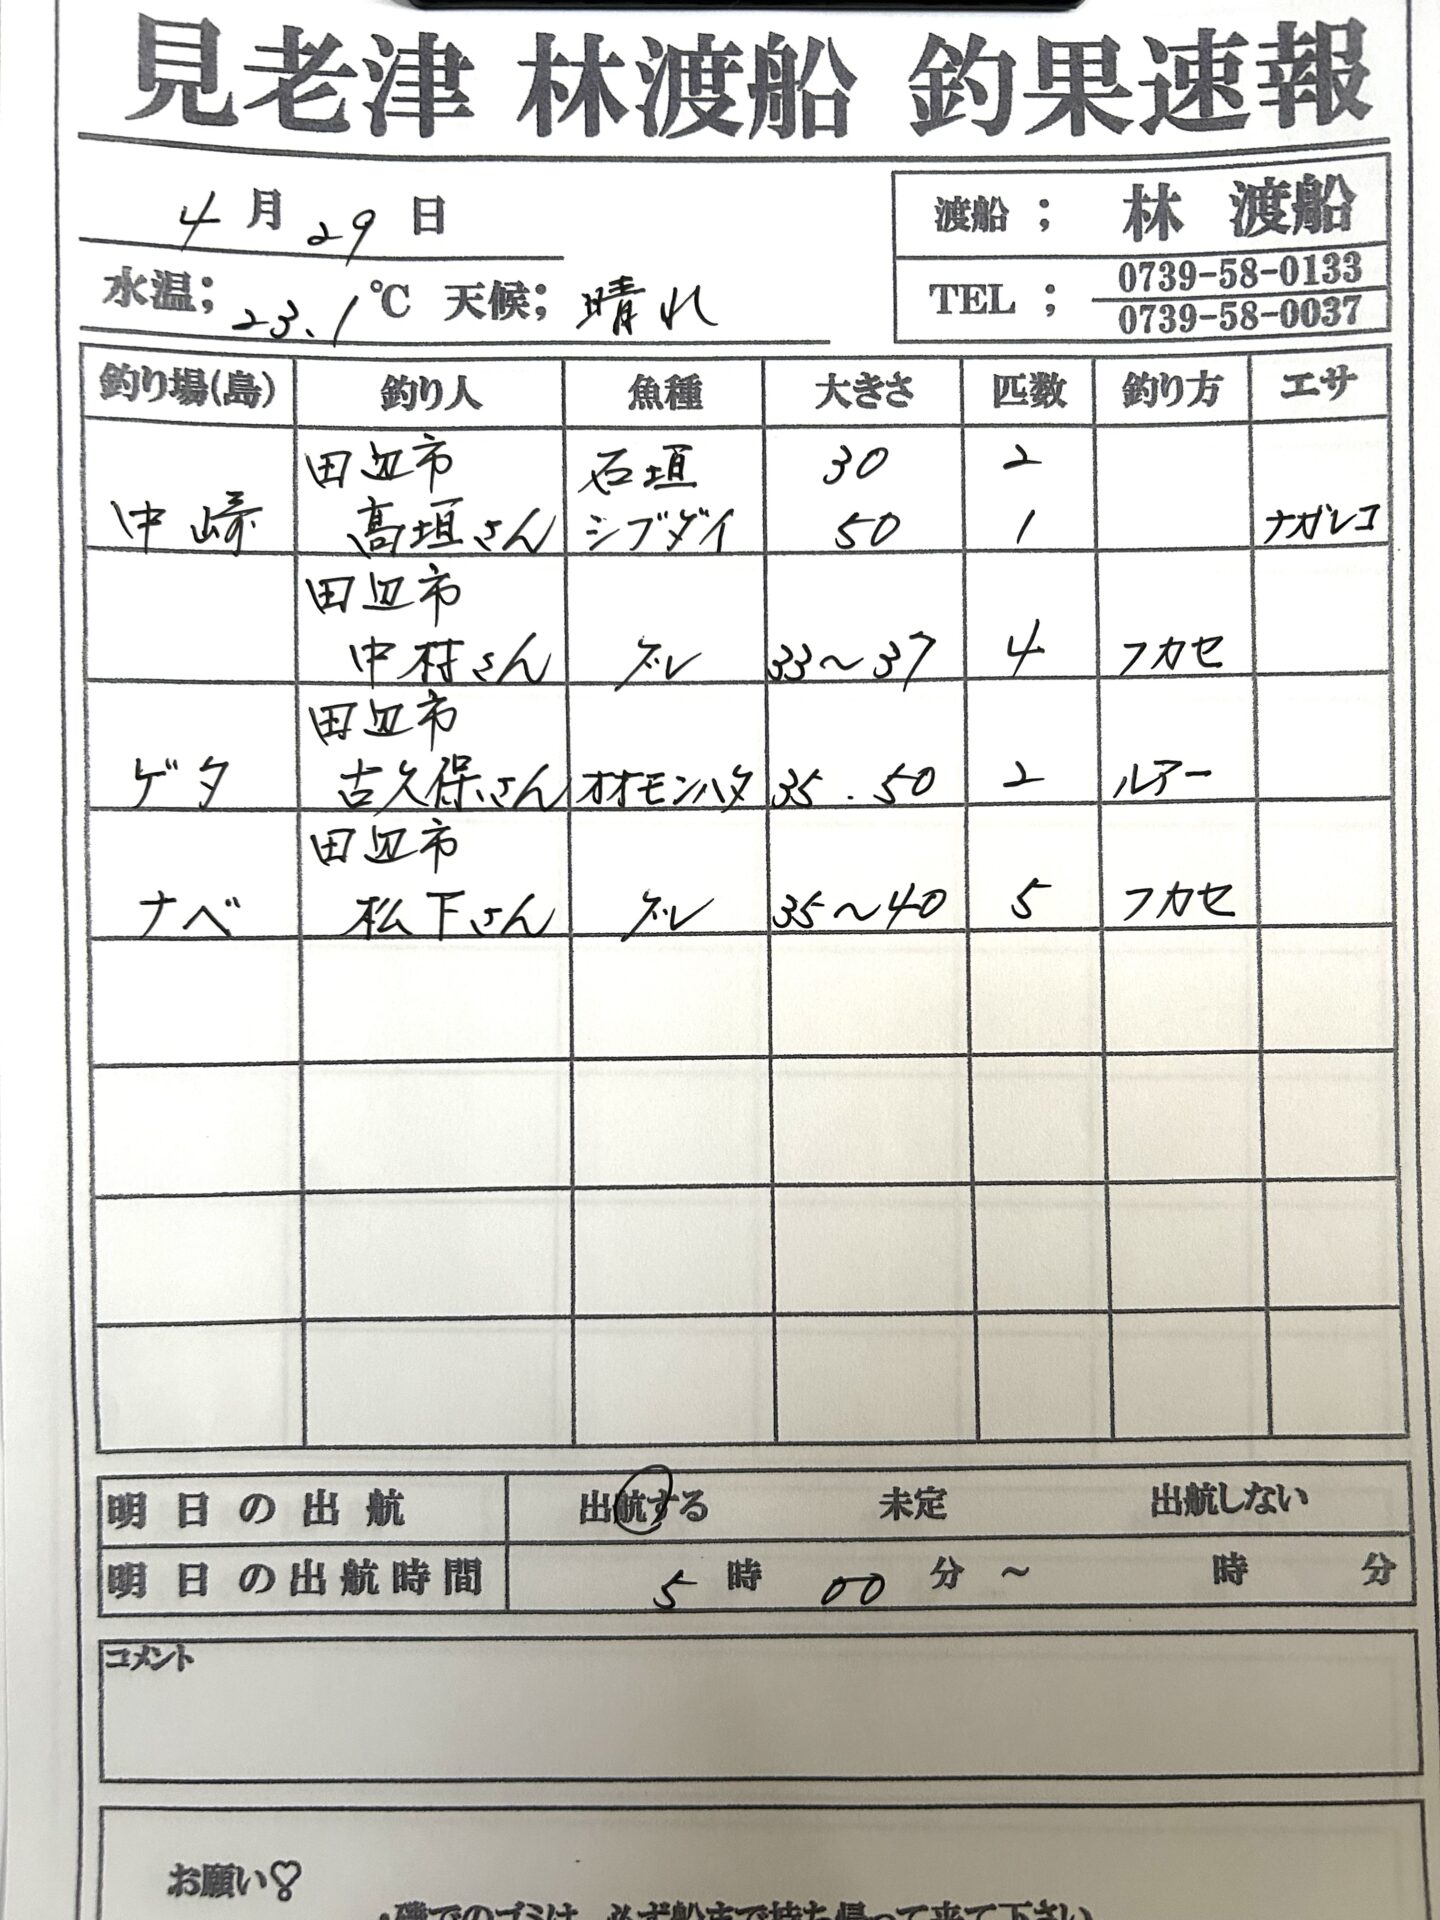 見老津 林渡船 釣果速報
4月29日
渡船; 林 渡船
水温; 23.1℃ 天候; 晴れ
TEL; 0739-58-0133
0739-58-0037
釣り場(島) 釣り人 魚種 大きさ 匹数 釣り方 エサ
田辺市 石垣 30 2
中崎 髙垣さん シブダイ 50 1 ナガレコ
田辺市
中村さん グレ 33～37 4 フカセ
田辺市
ゲタ 古久保さん オオモンハタ 35.50 2 ルアー
田辺市
ナベ 松下さん グレ 35～40 5 フカセ
明日の出航 出航する 未定 出航しない
明日の出航時間 5時00分～ 時 分
コメント
お願い♡
・磯でのゴミは、必ず船まで持ち帰って来て下さい